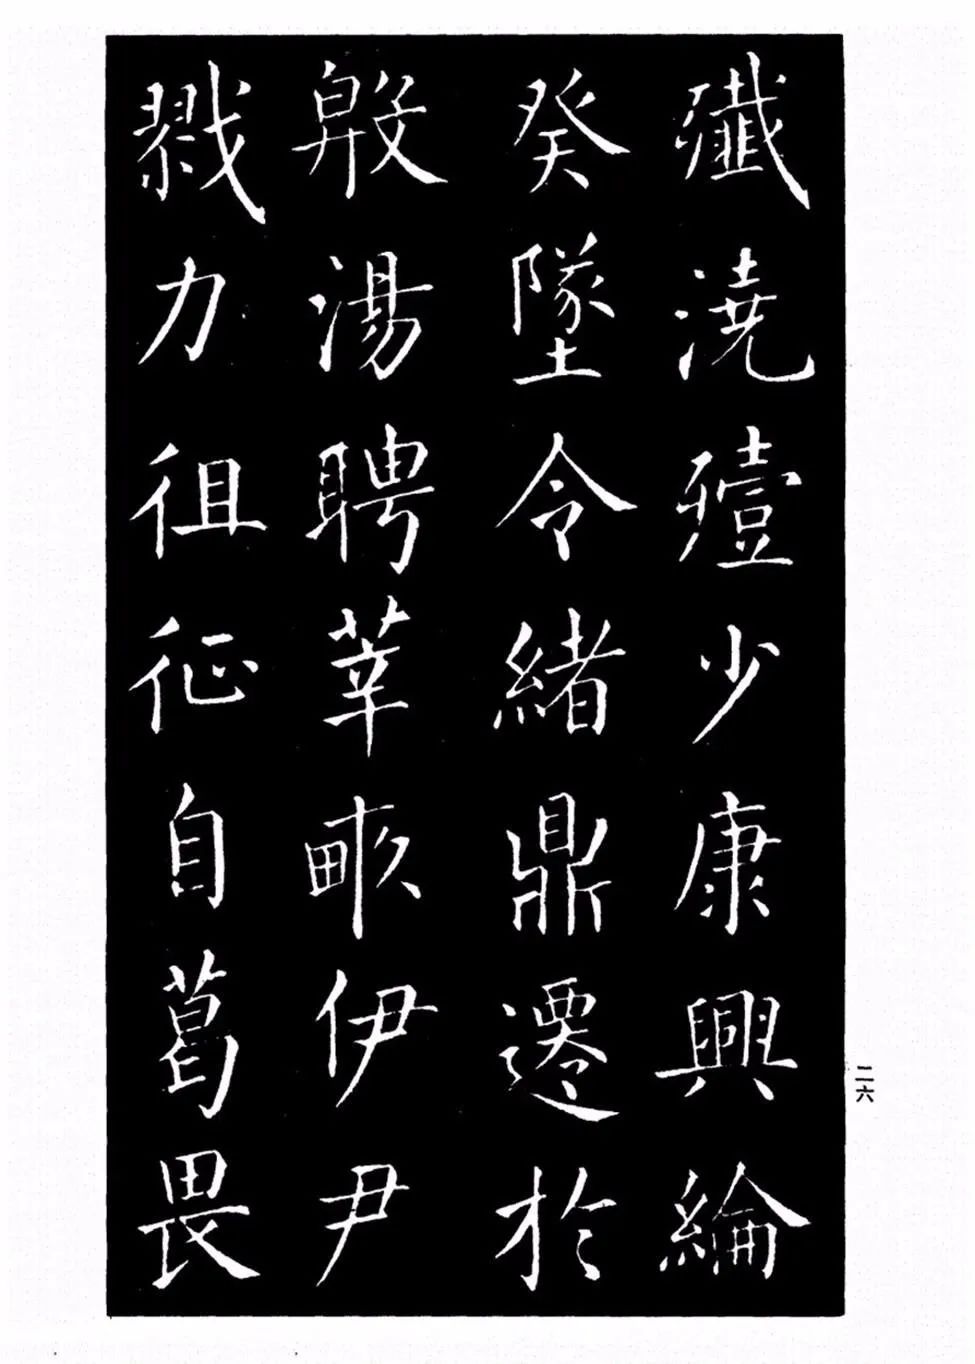 殲澆殪少康興綸
癸墜令緒鼎遷於
殷湯聘莘畎伊尹
戮力徂征自葛畏
二六